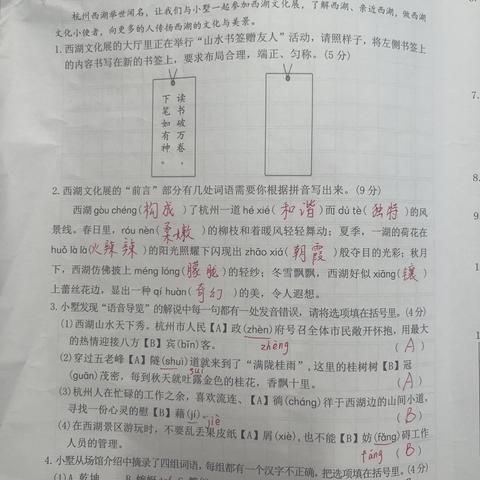 杭州西湖举世闻名,让我们与小墅一起参加西湖文化展,了解西湖、亲近西湖,做西湖
文化小使者,向更多的人传扬西湖的文化与美景。
1.西湖文化展的大厅里正在举行“山水书签赠友人”活动,请照样子,将左侧书签上
的内容书写在新的书签上,要求布局合理,端正、匀称。(5分)
读书破万卷,
下笔如有神。
2.西湖文化展的“前言”部分有几处词语需要你根据拼音写出来。(9分)
西湖gòu chéng(构成)了杭州一道hé xié(和谐)而dú tè(独特)的风
景线。春日里,róu nèn(柔嫩)的柳枝和着暖风轻轻舞动;夏季,一湖的荷花在
huǒ là là(火辣辣)的阳光照耀下闪现出zhāo xiá(朝霞)般夺目的光彩;秋月
下,西湖仿佛披上méng lóng(朦胧)的轻纱;冬雪飘飘,西湖好似xiāng(镶)
上蕾丝花边,显出一种qí huàn(奇幻)的美,令人遐想。
3.小墅发现“语音导览”的解说中每一句都有一处发音错误,请将选项填在括号里。(4分)
(1)西湖山水天下秀。杭州市人民【A】政(zhèn)府号召全体市民敞开怀抱,用最大
的热情迎接八方【B】宾(bīn)客。 zhèng (A)
(2)穿过五老峰【A】隧(shuì)道就来到了“满陇桂雨”,这里的桂树树【B】冠
suì
(guān)茂密,每到秋天就吐露金色的桂花,香飘十里。 (A)
(3)杭州人在忙碌的工作之余,喜欢流连、【A】徜(cháng)徉于西湖边的山间小道,
寻找一份心灵的慰【B】藉(jí)。 jiè (B)
(4)在西湖景区游玩时,不要乱丢果皮纸【A】屑(xiè),也不能【B】妨(fāng)碍工作
人员的管理。 fáng (B)
4.小墅从场馆介绍中摘录了四组词语,每组都有一个汉字不正确,把选项填在括号里。(4分)
(1)A.乾坤
7.
8.